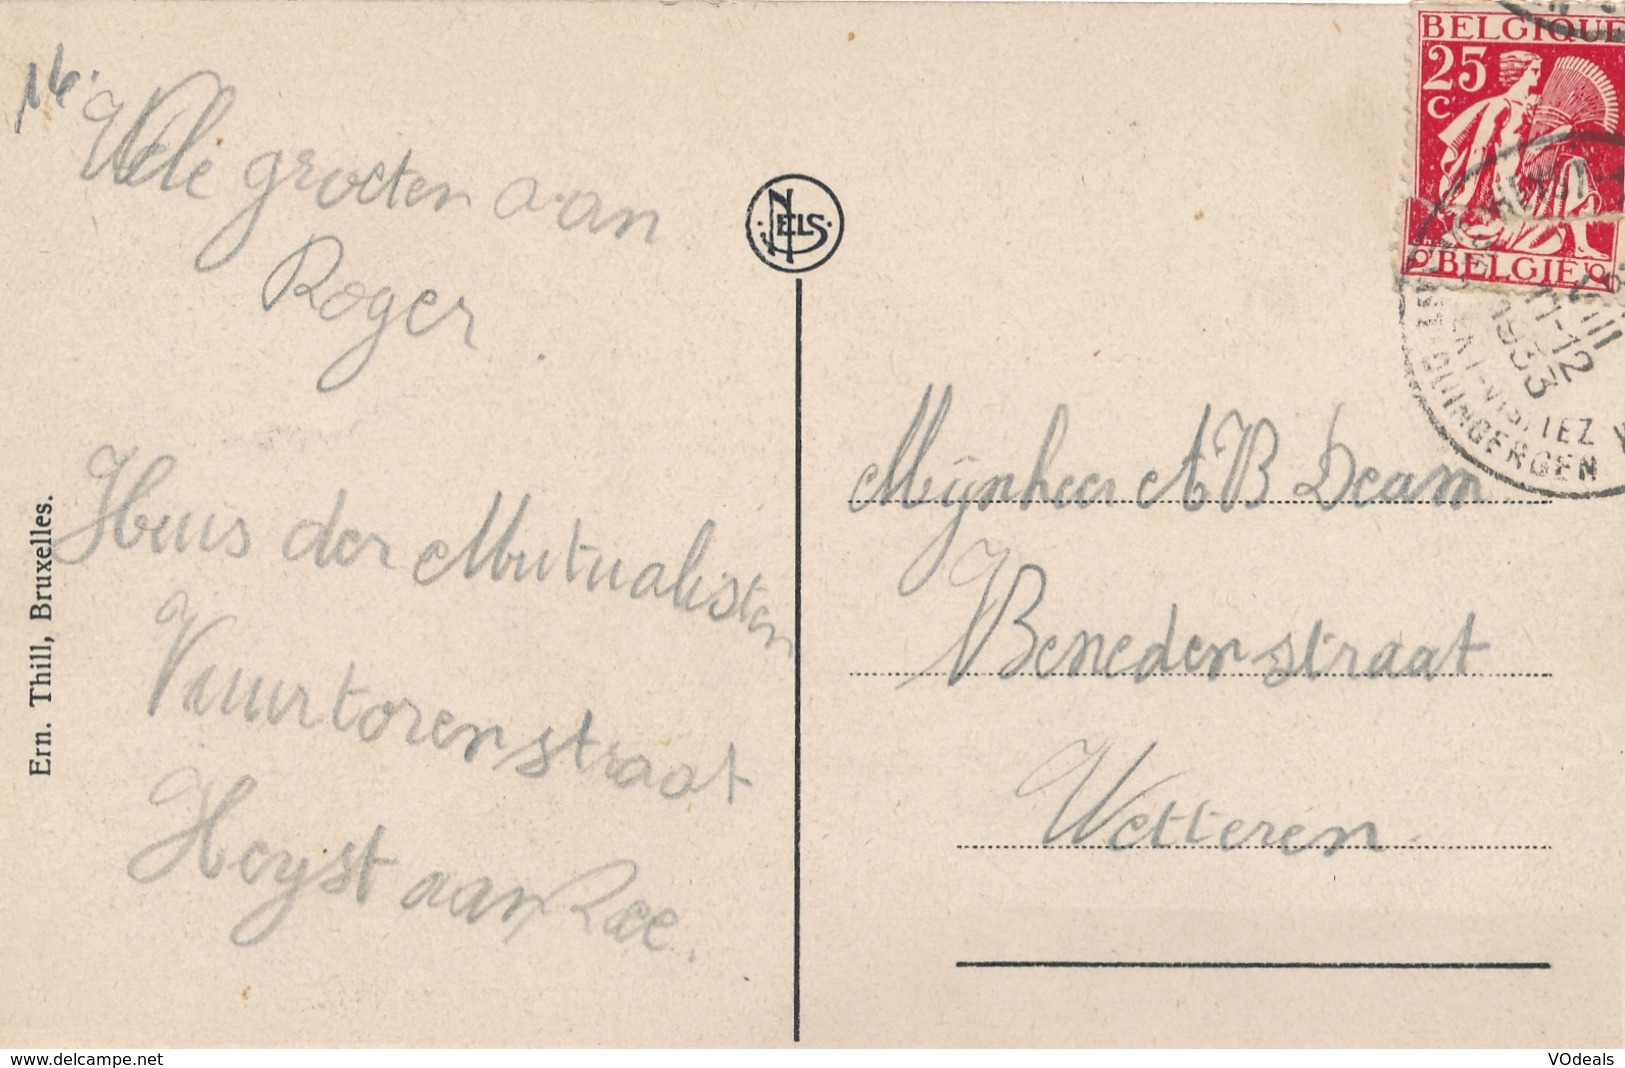 14.
Vele groeten aan
Roger.
Huis der Mutualisten
Vuurtorenstraat
Heyst aan Zee.
Ern. Thill, Bruxelles.
NELS
BELGIQUE
25
C
BELGIE
11-12
VIII
1933
VISITEZ
DUINBERGEN
Mijnheer AB Deam
Benedenstraat
Wetteren.
www.delcampe.net
VOdeals